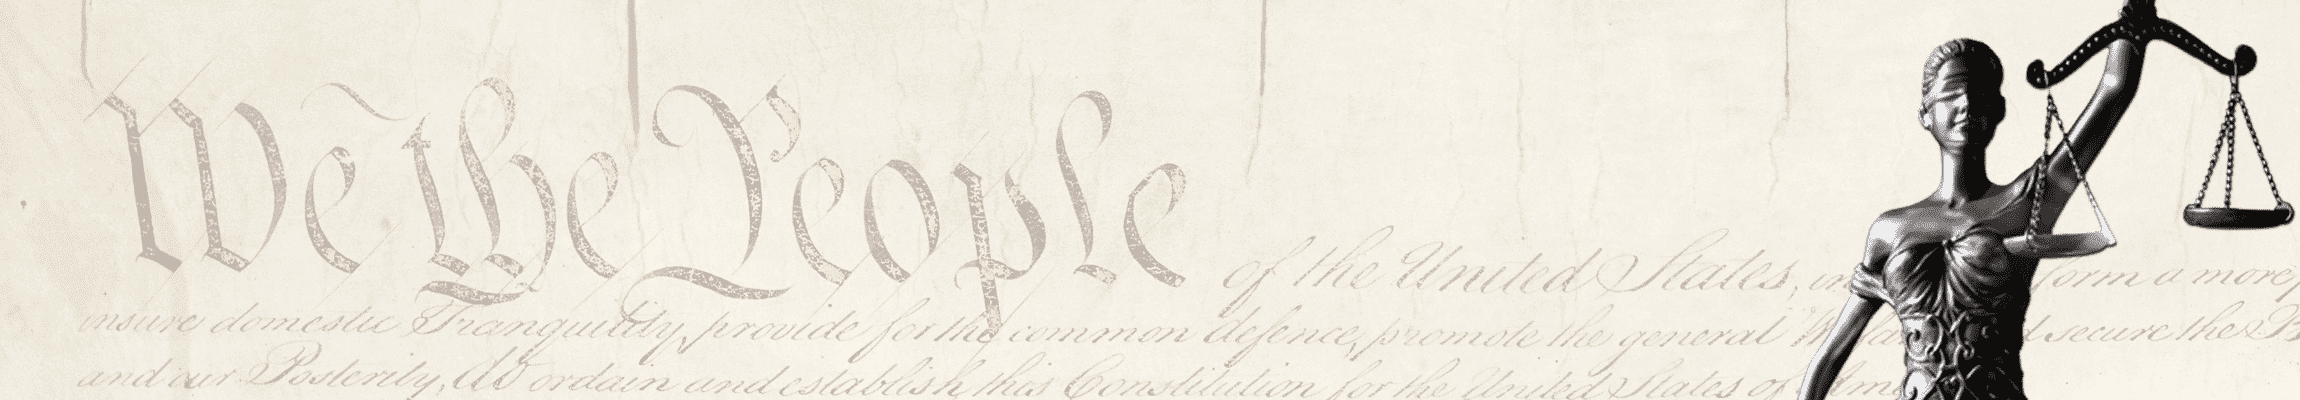 We the People of the United States, in form a more
insure domestic Tranquility, provide for the common defence, promote the general secure the
and our Posterity, do ordain and establish this Constitution for the United States of